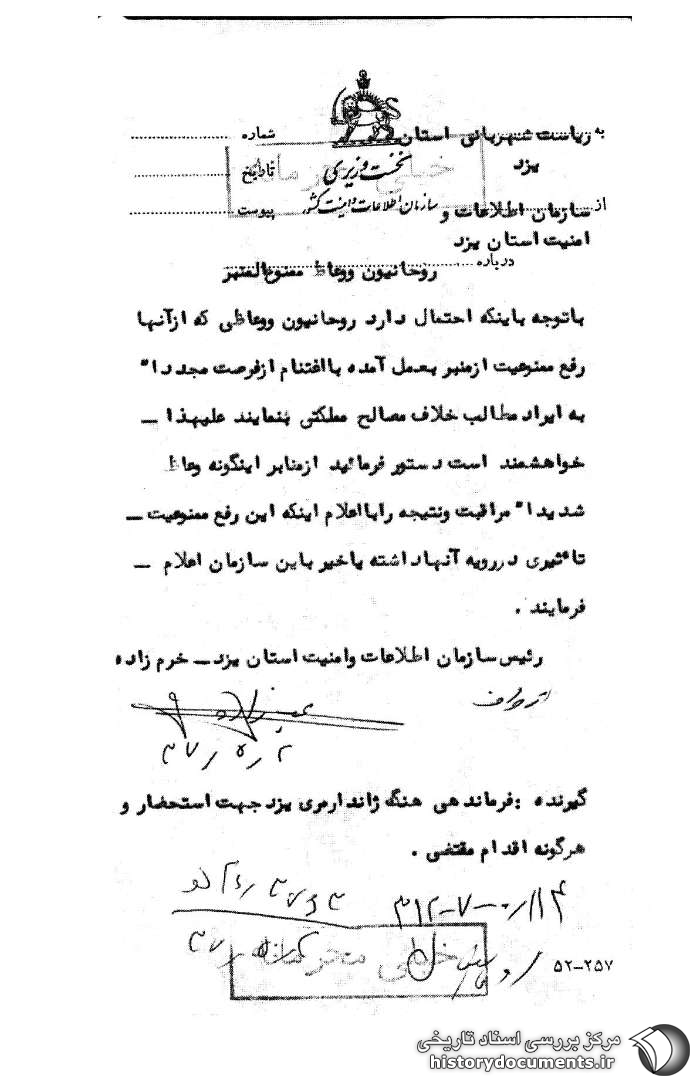 به ریاست شهربانی استان
یزد
شماره
نخست وزیری
خیلی محرمانه
تاریخ
از سازمان اطلاعات و
سازمان اطلاعات و امنیت کشور
پیوست
امنیت استان یزد
درباره روحانیون ووعاظ ممنوع‌المنبر
باتوجه باینکه احتمال دارد روحانیون ووعاظی که ازآنها
رفع ممنوعیت ازمنبر بعمل آمده بااغتنام ازفرصت مجددا"
به ایراد مطالب خلاف مصالح مملکتی بنمایند علیهذا ـ
خواهشمند است دستور فرمائید ازمنابر اینگونه وعاظ
شدیدا" مراقبت ونتیجه رابااعلام اینکه این رفع ممنوعیت ـ
تاٴثیری دررویه آنهاداشته یاخیر باین سازمان اعلام ـ
فرمایند .
رئیس سازمان اطلاعات وامنیت استان یزد ـ خرم زاده
گیرنده : فرماندهی هنگ ژاندارمری یزد جهت استحضار و
هرگونه اقدام مقتضی .
خیلی محرمانه
۵۲-۲۵۷
مرکز بررسی اسناد تاریخی
historydocuments.ir